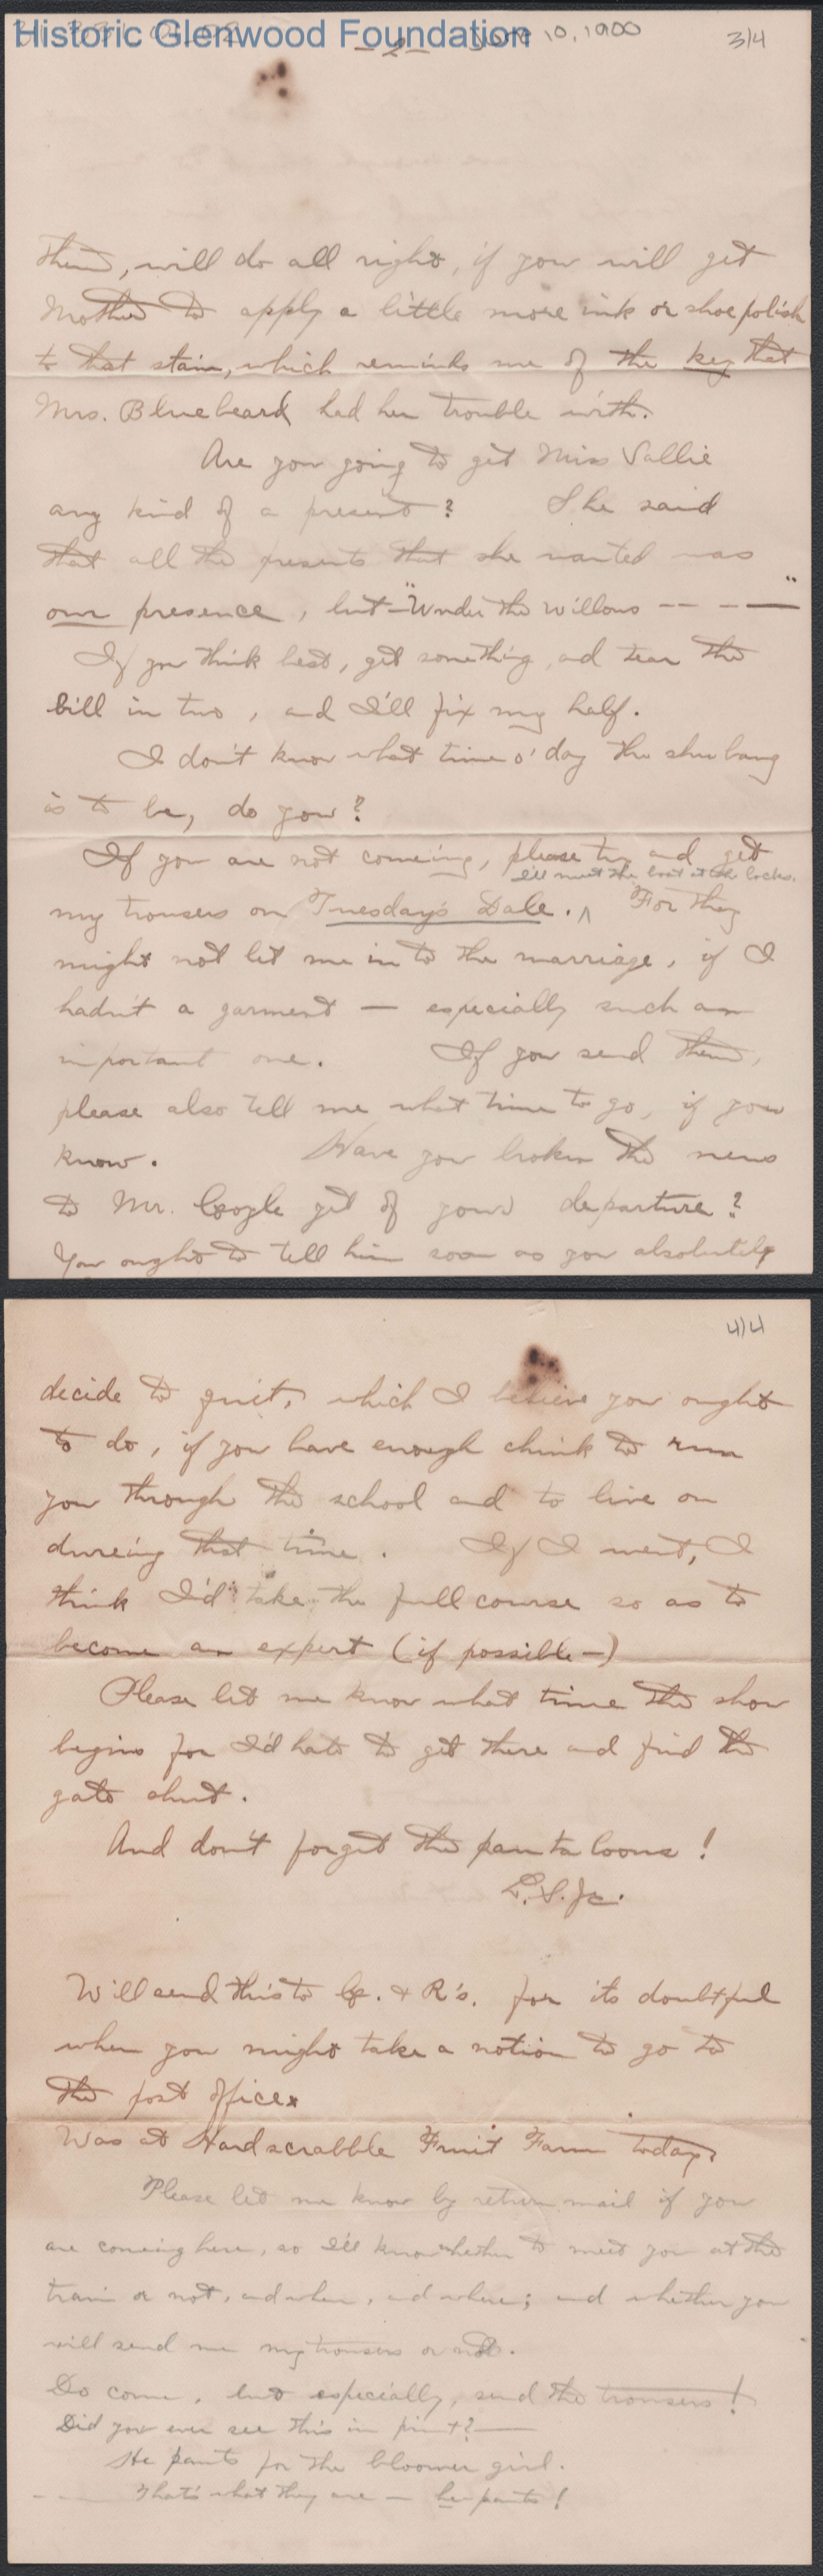 Historic Glenwood Foundation
-2- June 10, 1900 3/4
them, will do all right, if you will get
Mother to apply a little more ink or shoe polish
to that stain, which reminds me of the key that
Mrs. Bluebeard had her trouble with.
Are you going to get Miss Sallie
any kind of a present? She said
that all the presents that she wanted was
our presence, but "Under the Willows -- - —"
If you think best, get something, and tear the
bill in two, and I'll fix my half.
I don't know what time o' day the shubang
is to be, do you?
If you are not comeing, please try and get
I'll meet the boat at the locks.
my trousers on Tuesday's Dale. ^ For they
might not let me in to the marriage, if I
hadn't a garment — especially such an
important one. If you send them,
please also tell me what time to go, if you
know. Have you broken the news
to Mr. Cogle yet of your departure?
You ought to tell him soon as you absolutely
4/4
decide to quit, which I believe you ought
to do, if you have enough chink to run
you through the school and to live on
dureing that time. If I went, I
think I'd take the full course so as to
become an expert (if possible —)
Please let me know what time the show
begins for I'd hate to get there and find the
gate shut.
And don't forget the pantaloons!
L.S. Jr.
Will send this to C. & R's. for its doubtful
when you might take a notion to go to
the post office.
Was at Hardscrabble Fruit Farm today.
Please let me know by return mail if you
are coming here, so I'll know whether to meet you at the
train or not, and when, and where; and whether you
will send me my trousers or not.
Do come, but especially, send the trousers!
Did you ever see this in print? —
He pants for the bloomer girl.
-- That's what they are — her pants!